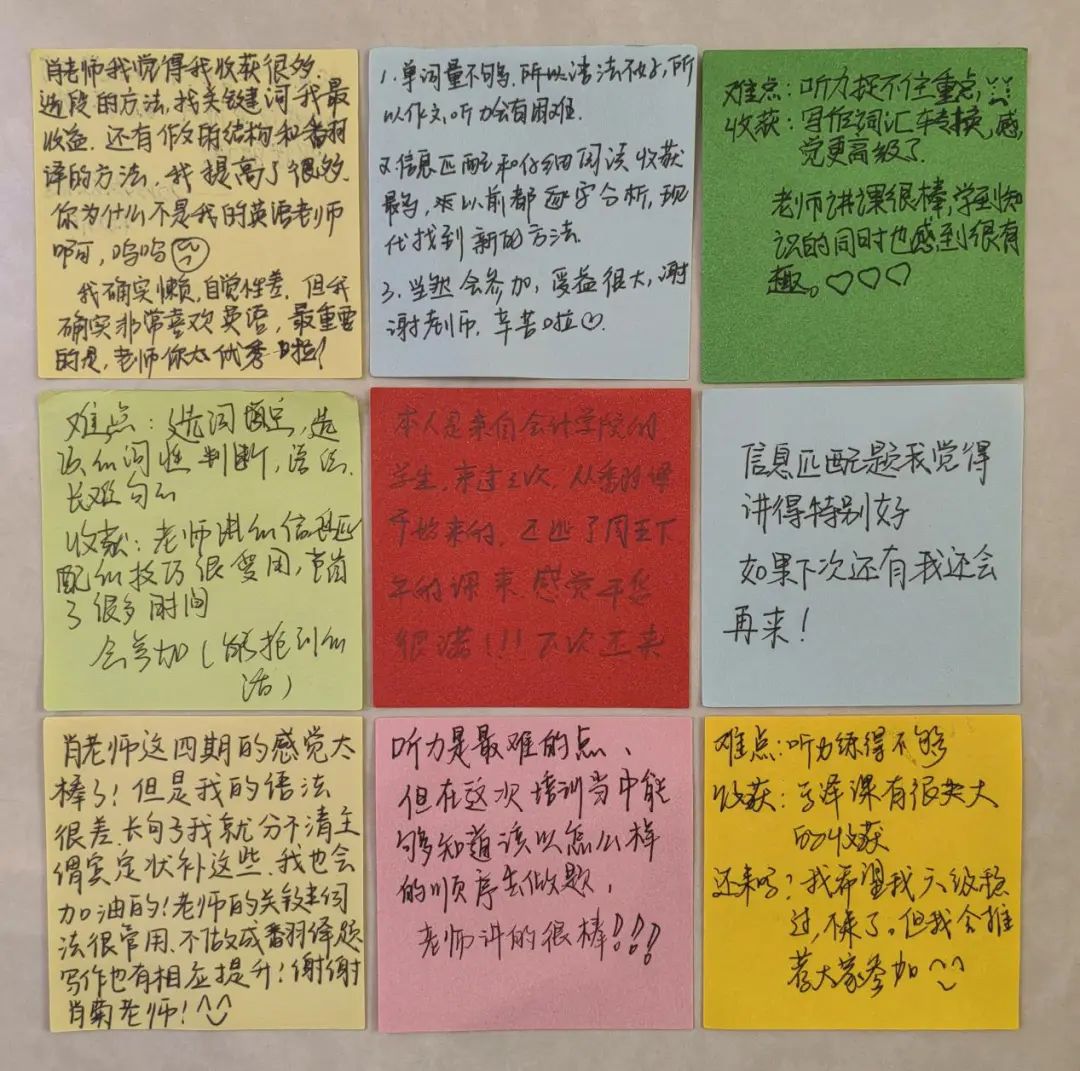 肖老师我觉得我收获很多.
选段的方法,找关键词我最
收益.还有作文的结构和翻
译的方法,我提高了很多.
你为什么不是我的英语老师
啊,呜呜
我确实懒,自觉性差.但我
确实非常喜欢英语,最重要
的是,老师你太优秀啦!
1.单词量不够,所以语法不好,所
以作文,听力会有困难.
2.信息匹配和仔细阅读收获
最多,以前都逐字分析,现
代找到新的方法.
3.当然会参加,受益很大,谢
谢老师,辛苦啦
难点:听力捉不住重点,
收获:写作词汇转换,感
觉更高级了.
老师讲课很棒,学到知
识的同时也感到很有
趣。♡♡♡
难点:选词填空,选
词的词性判断,语法.
长难句的
收获:老师讲的信息匹
配的技巧很受用,节省
了很多时间
会参加(能抢到的
话)
本人是来自会计学院的
学生,来过三次,从翻译课
开始来的,还逃了周五下
午的课来.感觉干货
很满!!!下次还来
信息匹配题我觉得
讲得特别好
如果下次还有我还会
再来!
肖老师这四期的感觉太
棒了!但是我的语法
很差.长句子我就分不清主
谓宾定状补这些.我也会
加油的!老师的关键词
法很常用.不仅翻译题
写作也有相应提升!谢谢
肖菊老师!^^
听力是最难的点、
但在这次培训当中能
够知道该以怎么样
的顺序去做题,
老师讲的很棒!!!
难点:听力练得不够
收获:写译课有很大
的收获
还来吗?我希望我六级稳
过,不来了。但我会推
荐大家参加